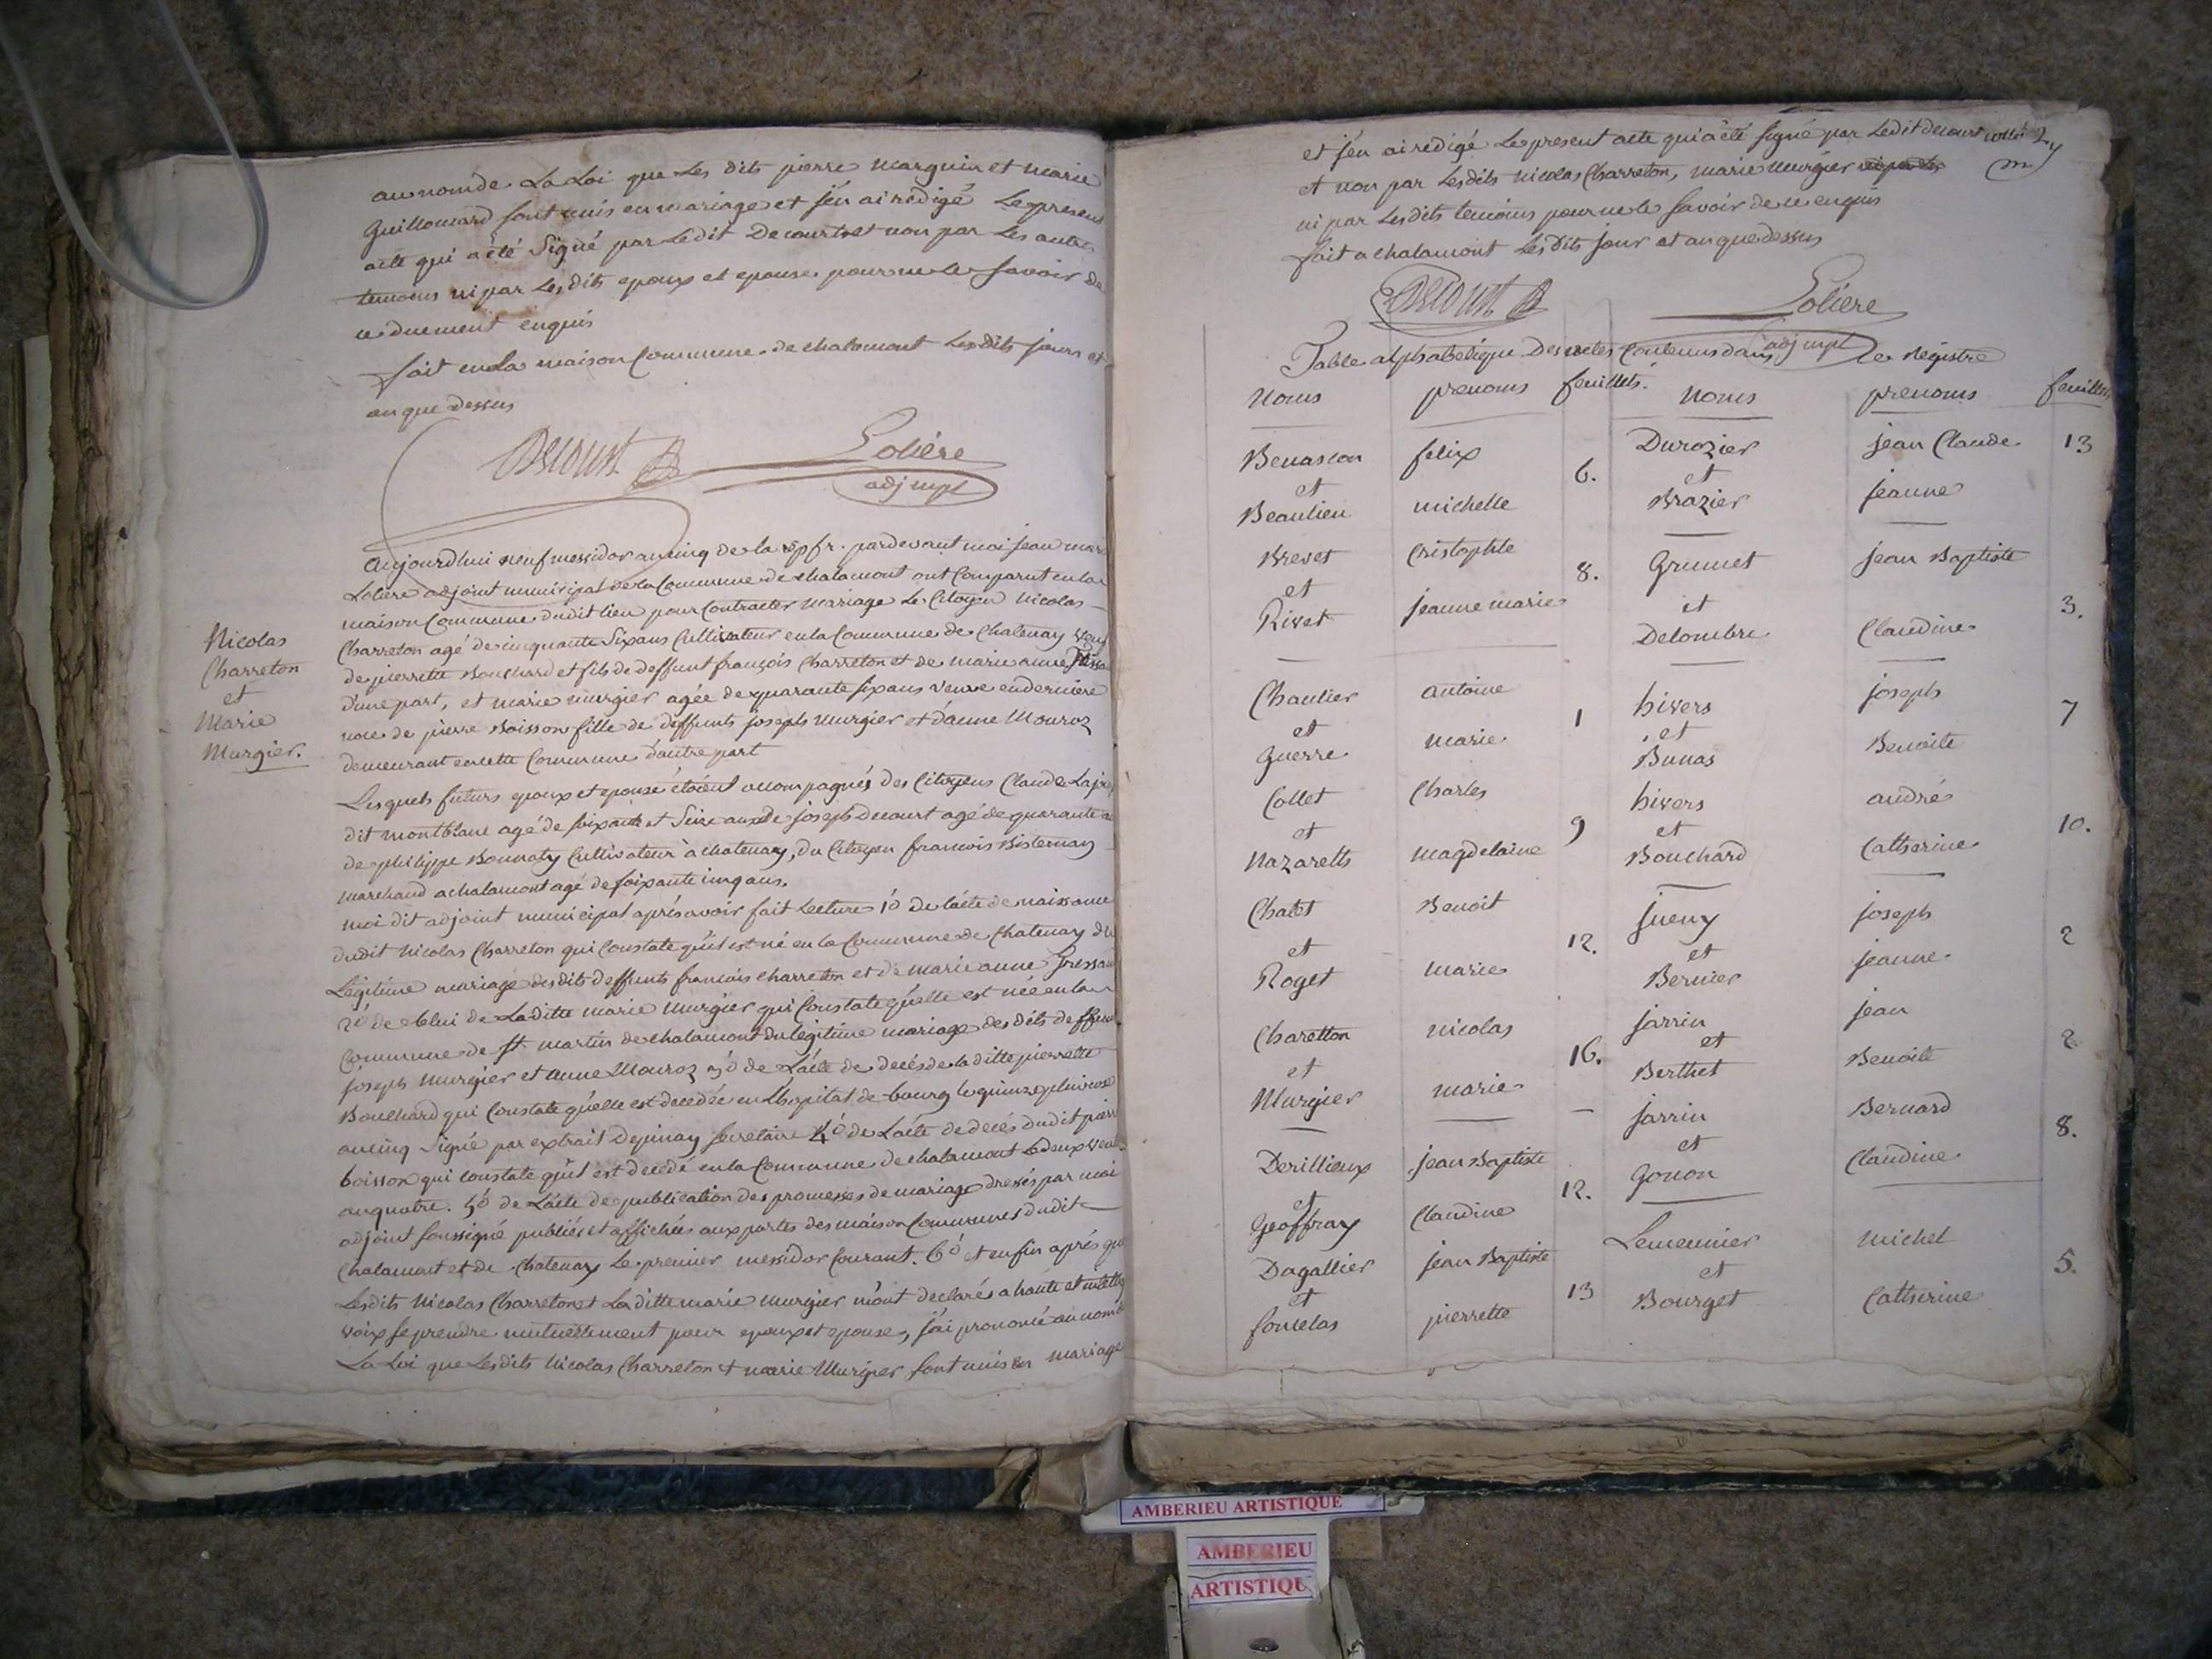 au nom de La Loi que Les dits pierre Marguin et Marie
Guillomard sont unis en mariage et j'en ai rédigé Le present
acte qui a été Signé par Ledit Decourt et non par Les autres
temoins ni par Les dits epoux et epouse pour ne le savoir de
ce duement enquis
fait en la maison Commune de chalamont Les dits jours et
an que dessus
Decourt
Loliere
adj mpl
Nicolas
Charreton
et
Marie
Murgier.
Aujourdhui neuf messidor an cinq de la rép fr. pardevant moi jean marie
Loliere adjoint municipal de la Commune de chalamont ont Comparut en la
maison Commune dudit lieu pour Contracter Mariage Le Citoyen Nicolas
Charreton agé de cinquante Six ans Cultivateur en la Commune de Chatenay veuf
de pierrette Bouchard et fils de deffunt françois Charreton et de marie anne
d'une part, et marie murgier agée de quarante six ans veuve en derniere
noce de pierre Boisson fille de deffunts joseph Murgier et d'anne Mouroz
demeurant en cette Commune d'autre part
Lesquels futurs epoux et epouse étoient accompagnés des Citoyens Claude
dit montblanc agé de soixante et Seize ans de joseph Decourt agé de quarante
de philippe Bonnaty Cultivateur a chatenay, du Citoyen francois Bisternay
marchand a chalamont agé de soixante cinq ans.
moi dit adjoint municipal aprés avoir fait Lecture 1º de l'acte de naissance
dudit Nicolas Charreton qui Constate qu'il est né en la Commune de Chatenay du
Légitime mariage desdits deffunts francois charreton et de marie anne
2º de Celui de Laditte marie Murgier qui Constate qu'elle est née en la
Commune de St martin de chalamont du légitime mariage des dits deffunts
joseph Murgier et anne Mouroz 3º de L'acte de decés de la ditte pierrette
Bouchard qui Constate qu'elle est decedée en L'hopital de bourg le quinze pluviose
an cinq Signé par extrait Depinay secretaire 4º de L'acte de decés dudit pierre
boisson qui Constate qu'il est decedé en la Commune de chalamont Le deux
an quatre. 5º de L'acte de publication des promesses de mariage dressés par moi
adjoint soussigné publiés et affichées aux portes des maison Communes dudit
Chalamont et de Chatenay Le premier messidor Courant. 6º et enfin aprés que
Lesdits Nicolas Charreton et La ditte marie Murgier m'ont declarés a haute et
voix se prendre mutuellement pour epoux et epouse, j'ai prononcé au nom de
La Loi que Lesdits Nicolas Charreton et marie Murgier sont unis en mariage
et j'en ai rédigé Le present acte qui a été signé par Ledit decourt
et non par Lesdits Nicolas Charreton, marie Murgier
ni par Lesdits temoins pour ne le savoir de ce enquis
fait a chalamont Les dits jour et an que dessus
Decourt
Loliere
adj mpl
Table alphabétique Des actes Contenus dans Le Régistre
Noms prenoms feuillets. Noms prenoms feuillets
Benascon felix 6. Durozier jean Claude 13
et et
Beaulieu michelle Brazier jeanne
Brevet Cristophle 8. Grumet jean Baptiste 3.
et et
Rivet jeanne marie Delombre Claudine
Chaulier antoine 1 hivers joseph 7
et et
Guerre marie Bunas Benoite
Collet Charles 9 hivers andré 10.
et et
Nazareth magdelaine Bouchard Catherine
Chalet Benoit 12. jueny joseph 2
et et
Roget marie Bernier jeanne
Charetton nicolas 16. jarrin jean 2
et et
Murgier marie Berthet Benoite
Derillieux jean Baptiste 12. jarrin Bernard 8.
et et
Geoffray Claudine Gonon Claudine
Dagallier jean Baptiste 13 Lemeunier michel 5.
et et
fonselas pierrette Bourget Catherine
AMBERIEU ARTISTIQUE
AMBERIEU
ARTISTIQU